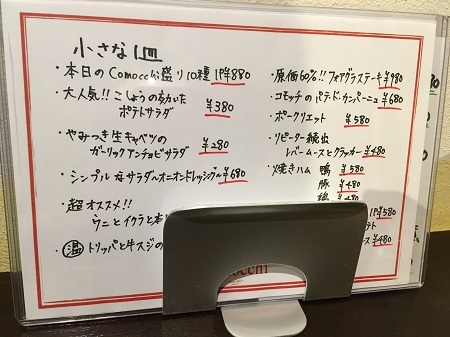 小さな1皿
・本日のComocchi盛り10種 1P¥880
・大人気!! こしょうの効いた
ポテトサラダ ¥380
・やみつき生キャベツの
ガーリックアンチョビサラダ ¥280
・シンプルなサラダ〜オニオンドレッシング〜 ¥680
・超オススメ!!
ウニとイクラと
・温 トリッパと牛スジの
・原価60%!! フォアグラステーキ ¥980
・コモッチのパテ・ド・カンパーニュ ¥680
・ポークリエット ¥580
・リピーター続出
レバームースとクラッカー ¥480
・焼きハム 鴨 ¥580
豚 ¥480
¥480
1P¥580
ス ¥480